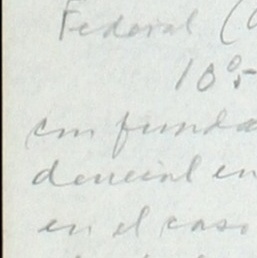 Federal (
10º-
con funda
dencial en
en el caso